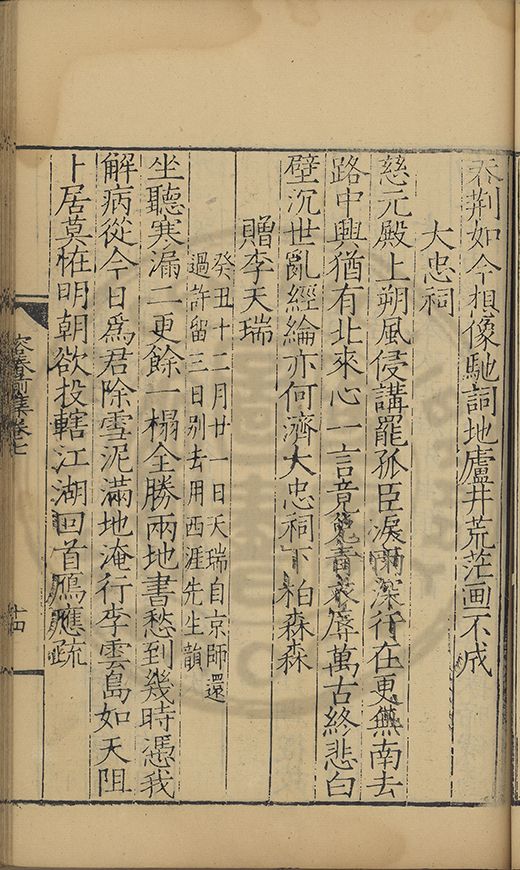 荆如今想像馳詞地廬井荒茫画不成
大忠祠
慈元殿上朔風侵講罷孤臣淚雨深行在更無南去
路中興猶有北來心一言竟免青衣辱萬古終悲白
壁沉世亂經綸亦何濟大忠祠下柏森森
贈李天瑞
癸丑十二月廿一日天瑞自京師還
過許留三日別去用西涯先生韻
坐聽寒漏二更餘一榻全勝兩地書愁到幾時憑我
解病從今日爲君除雪泥滿地淹行李雲島如天阻
卜居莫恠明朝欲投轄江湖回首鴈應疏
容春前集卷七
十四